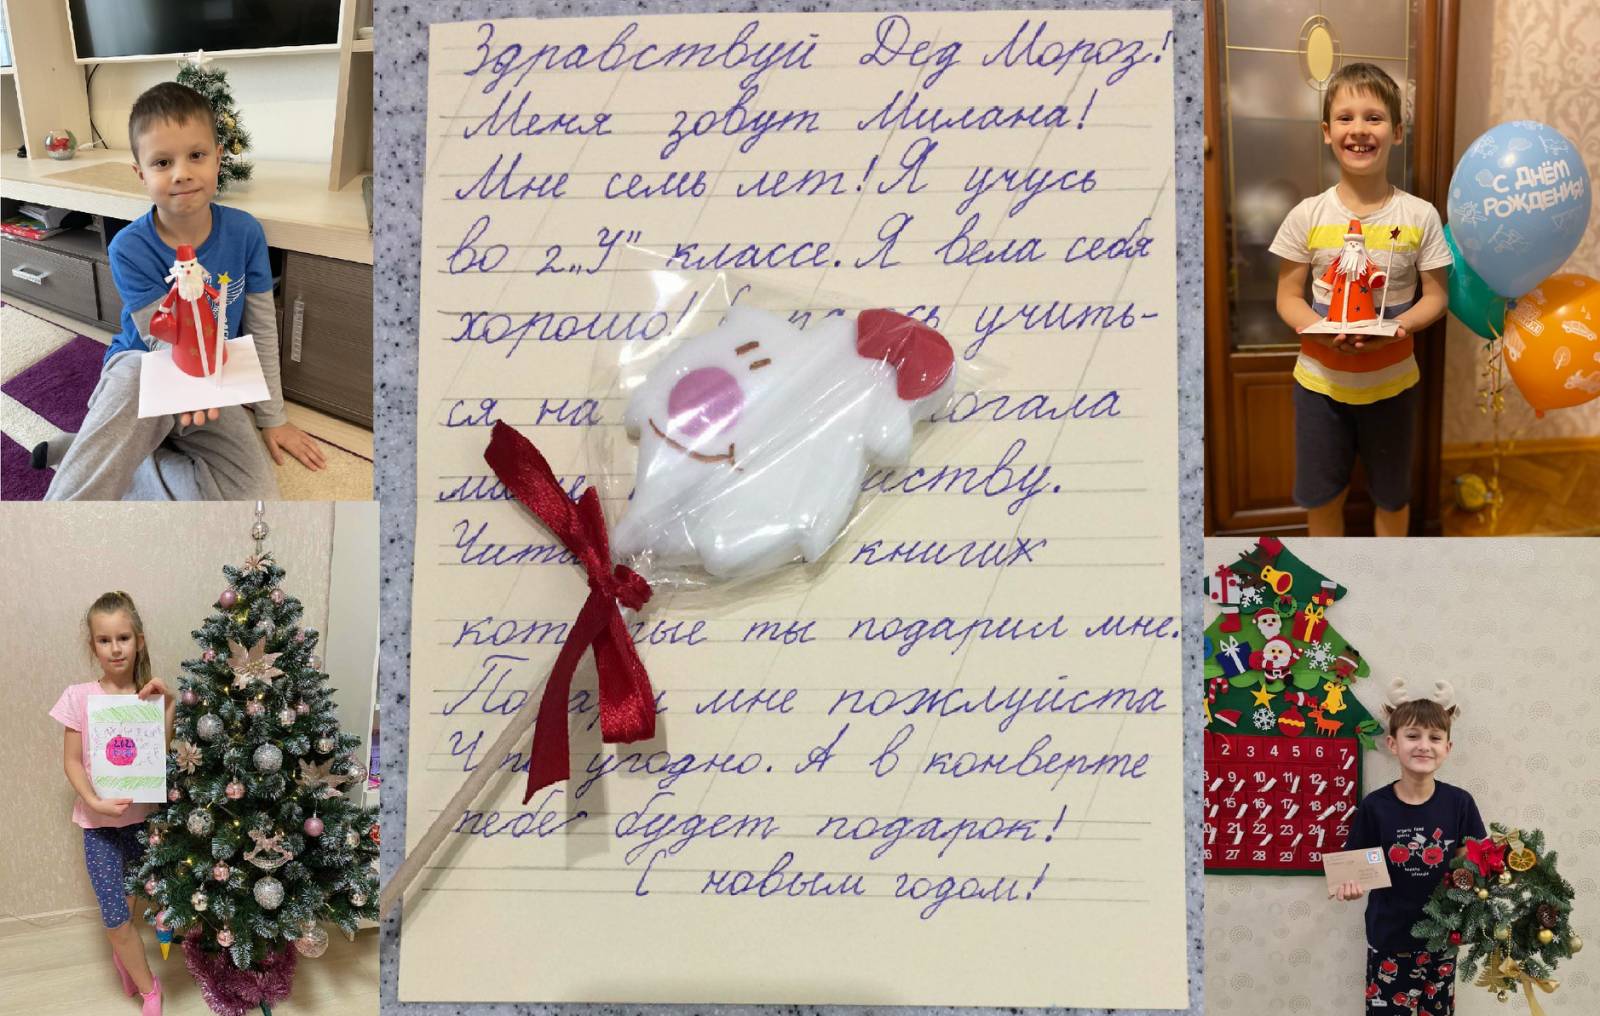 Здравствуй Дед Мороз!
Меня зовут Милана!
Мне семь лет! Я учусь
во 2 „У" классе. Я вела себя
хорошо! учить-
ся на
Чита книгих
которые ты подарил мне.
Подари мне пожлуйста
Что угодно. А в конверте
тебе будет подарок!
С новым годом!
С ДНЁМ
РОЖДЕНИЯ!
2 3 4 5 6 7
8 9 10 11 12 13
14 15 16 17 18 19
20 21 22 23 24 25
26 27 28 29 30